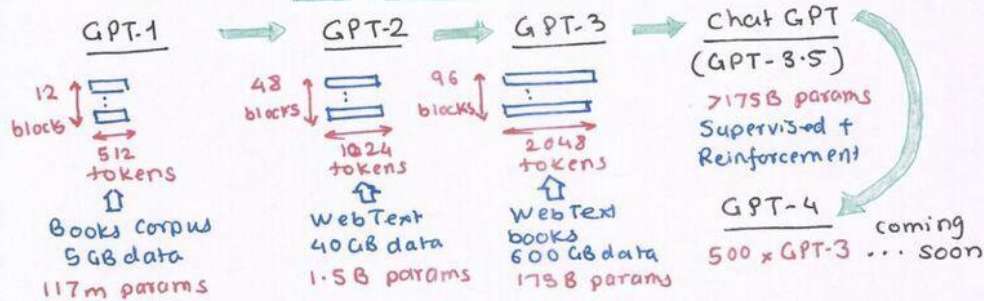 GPT-1
12
blocks
512
tokens
Books Corpus
5 GB data
117m params
GPT-2
48
blocks
1024
tokens
WebText
40 GB data
1.5 B params
GPT-3
96
blocks
2048
tokens
WebText
books
600 GB data
175 B params
Chat GPT
(GPT-3.5)
>175 B params
Supervised +
Reinforcement
GPT-4
500 x GPT-3
coming
... soon